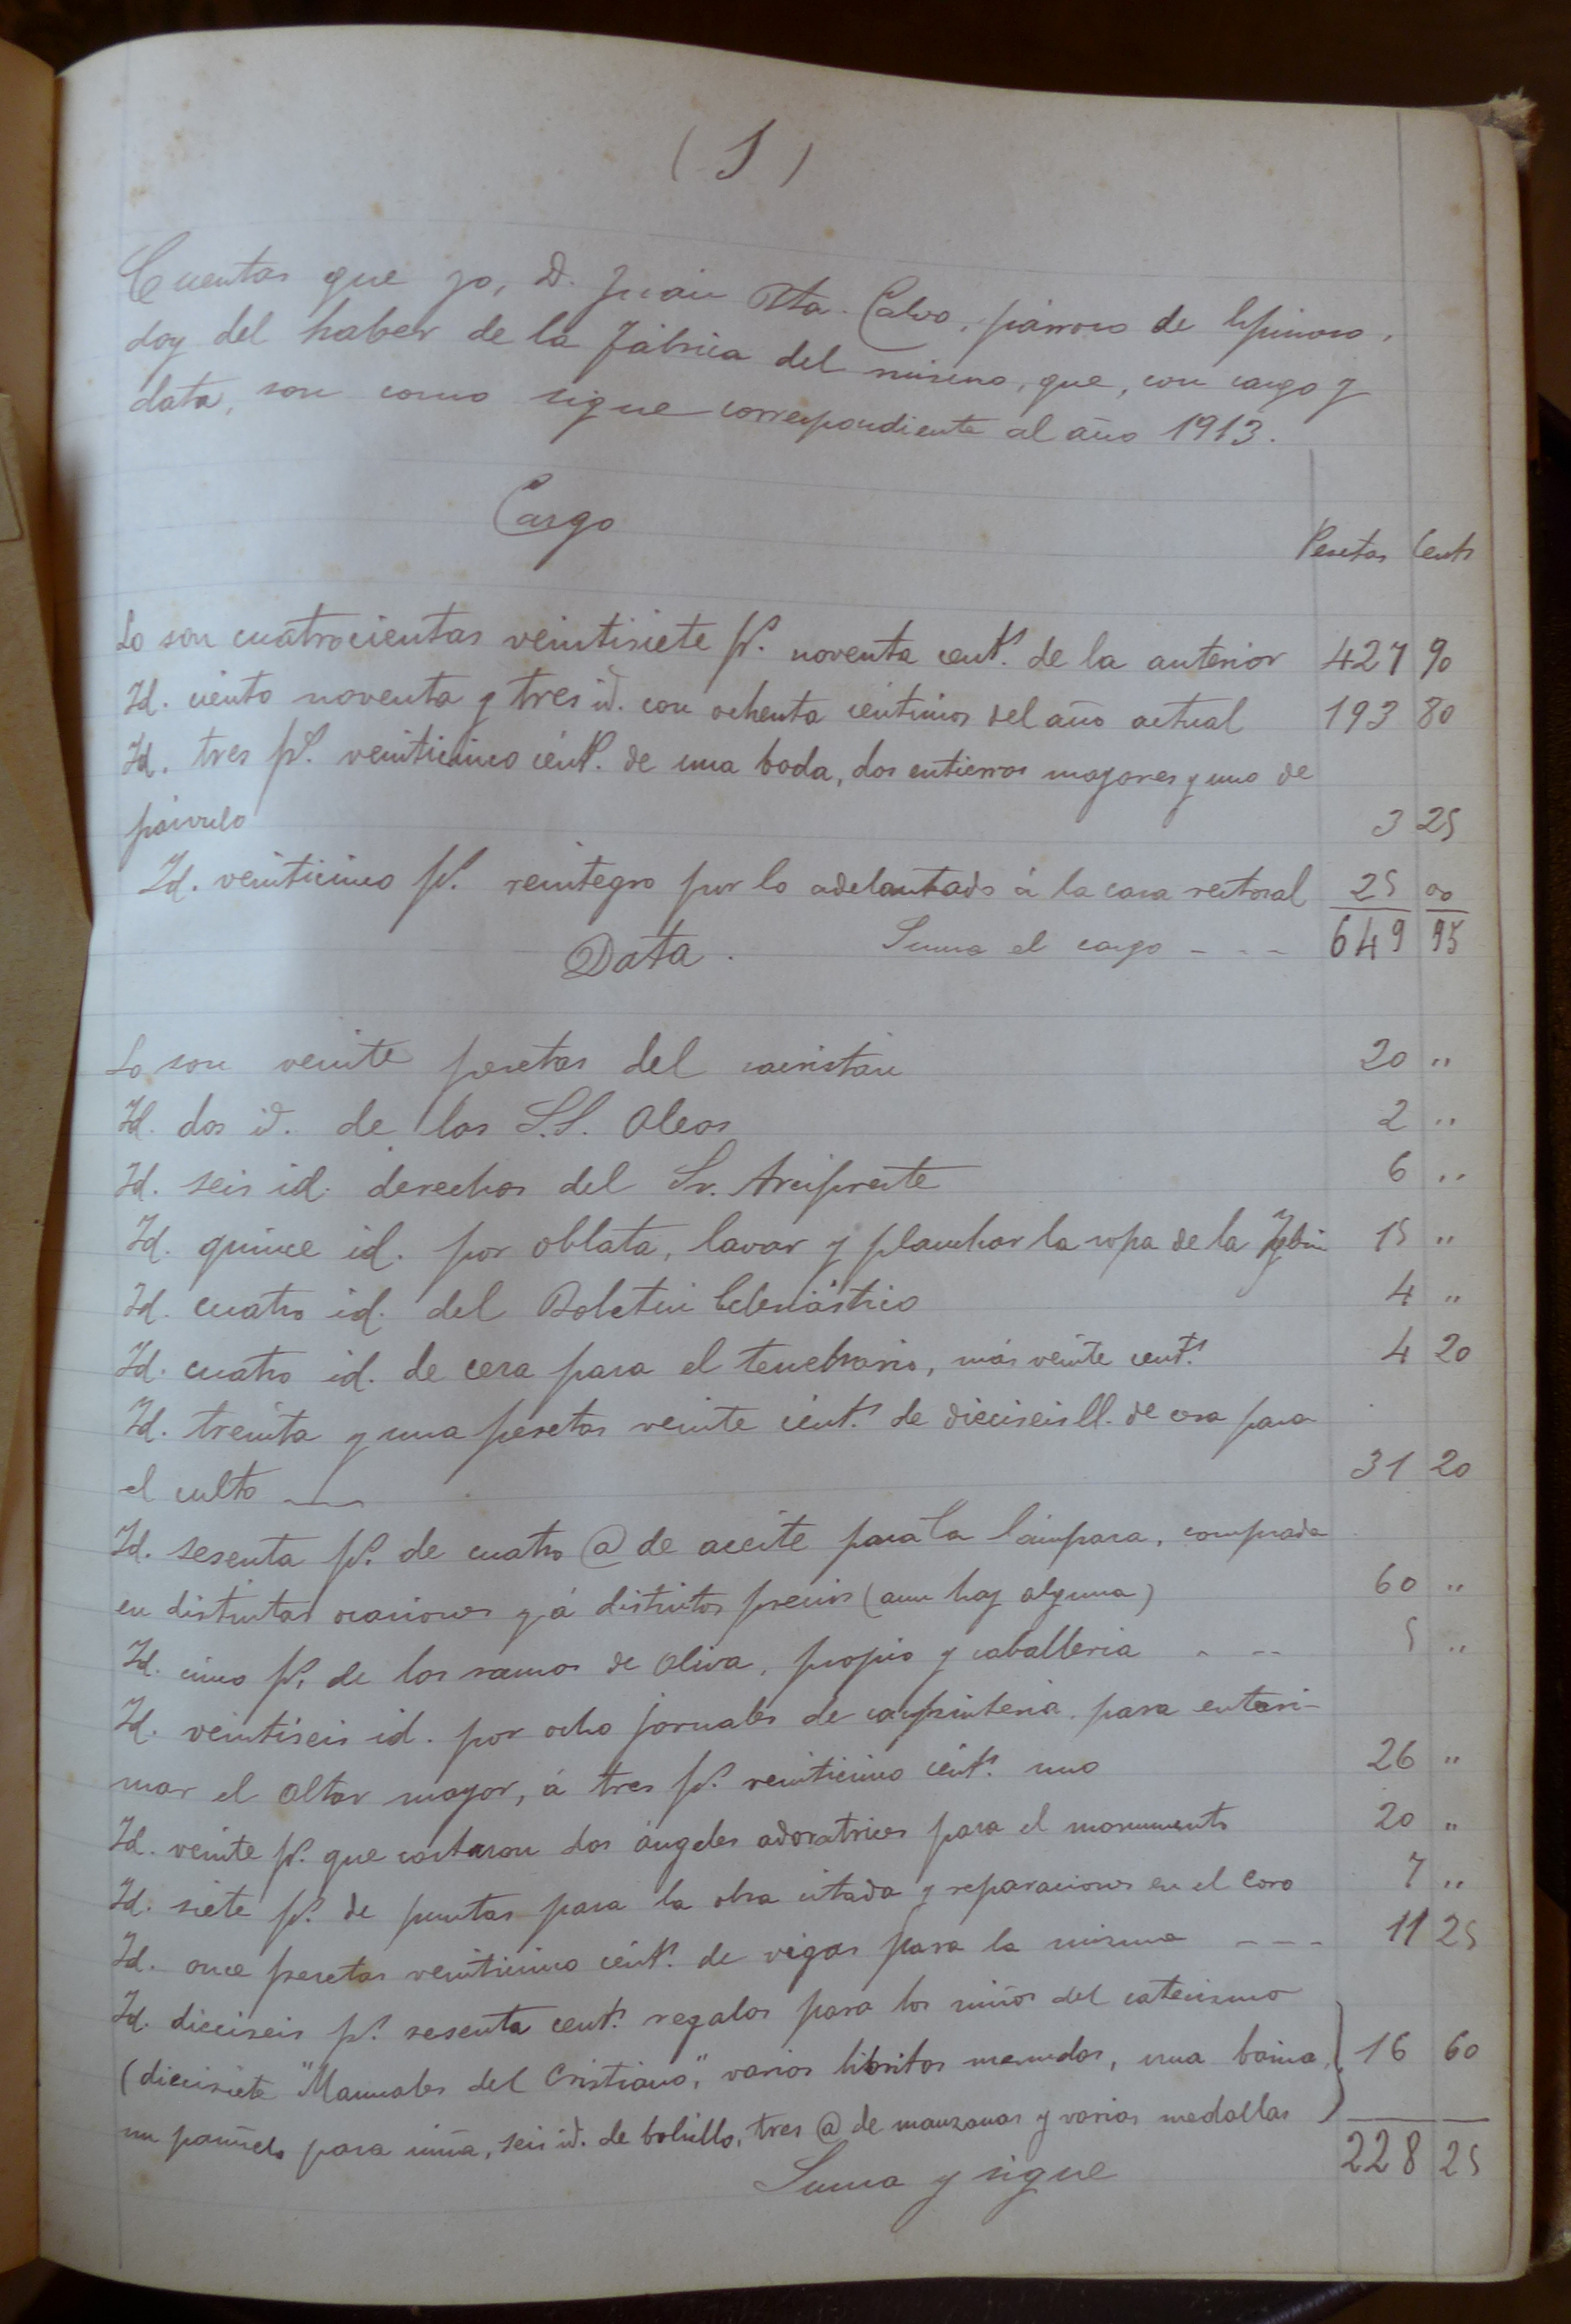 (1)
Cuentas que yo, D. Juan Bta. Calvo, párroco de Espinoso,
doy del haber de la Fábrica del mismo, que, con cargo y
data, son como sigue correspondiente al año 1913.
Cargo
Pesetas Cents
Lo son cuatrocientas veintisiete ps. noventa cent.s de la anterior 427 90
Id. ciento noventa y tres id. con ochenta céntimos del año actual 193 80
Id. tres ps. veinticinco cént.s de una boda, dos entierros mayores y uno de
párvulo 3 25
Id. veinticinco ps. reintegro por lo adelantado á la casa rectoral 25 00
Suma el cargo - - - 649 95
Data.
Lo son veinte pesetas del sacristán 20 "
Id. dos id. de los S.S. Oleos 2 "
Id. seis id. derechos del Sr. Arcipreste 6 "
Id. quince id. por oblata, lavar y planchar la ropa de la 15 "
Id. cuatro id. del Boletin Eclesiástico 4 "
Id. cuatro id. de cera para el tenebrario, más veinte cent.s 4 20
Id. treinta y una pesetas veinte cént.s de dieciseis ll. de cera para
el culto 31 20
Id. sesenta ps. de cuatro @ de aceite para la lámpara, comprada
en distintas ocasiones y á distintos precios (aun hay alguna) 60 "
Id. cinco ps. de los ramos de oliva, propio y caballeria - -- 5 "
Id. veintiseis id. por ocho jornales de carpinteria para entari-
mar el altar mayor, á tres ps. veinticinco cént.s uno 26 "
Id. veinte ps. que costaron dos ángeles adoratrices para el monumento 20 "
Id. siete ps. de puntas para la obra citada y reparaciones en el Coro 7 "
Id. once pesetas veinticinco cént.s de vigas para la misma - - - 11 25
Id. dieciseis ps. sesenta cent.s regalos para los niños del catecismo
(diecisiete "Manuales del Cristiano", varios libritos menudos, una boina, 16 60
un pañuelo para niña, seis id. de bolsillo, tres @ de manzanas y varias medallas
Suma y sigue 228 25